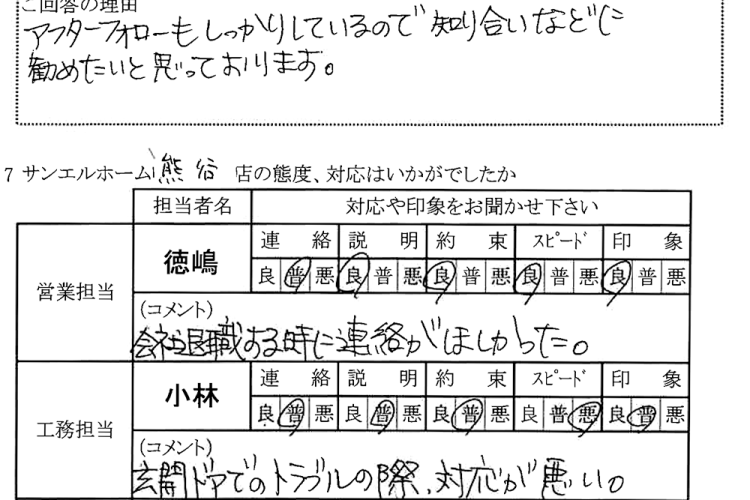 ご回答の理由
アフターフォローもしっかりしているので知り合いなどに
勧めたいと思っております。
7 サンエルホーム 熊谷 店の態度、対応はいかがでしたか
担当者名 対応や印象をお聞かせ下さい
営業担当 徳嶋 連絡 説明 約束 スピード 印象
良 普 悪 良 普 悪 良 普 悪 良 普 悪 良 普 悪
(コメント)
会社退職する時に連絡がほしかった。
工務担当 小林 連絡 説明 約束 スピード 印象
良 普 悪 良 普 悪 良 普 悪 良 普 悪 良 普 悪
(コメント)
玄関ドアでのトラブルの際、対応が悪い。